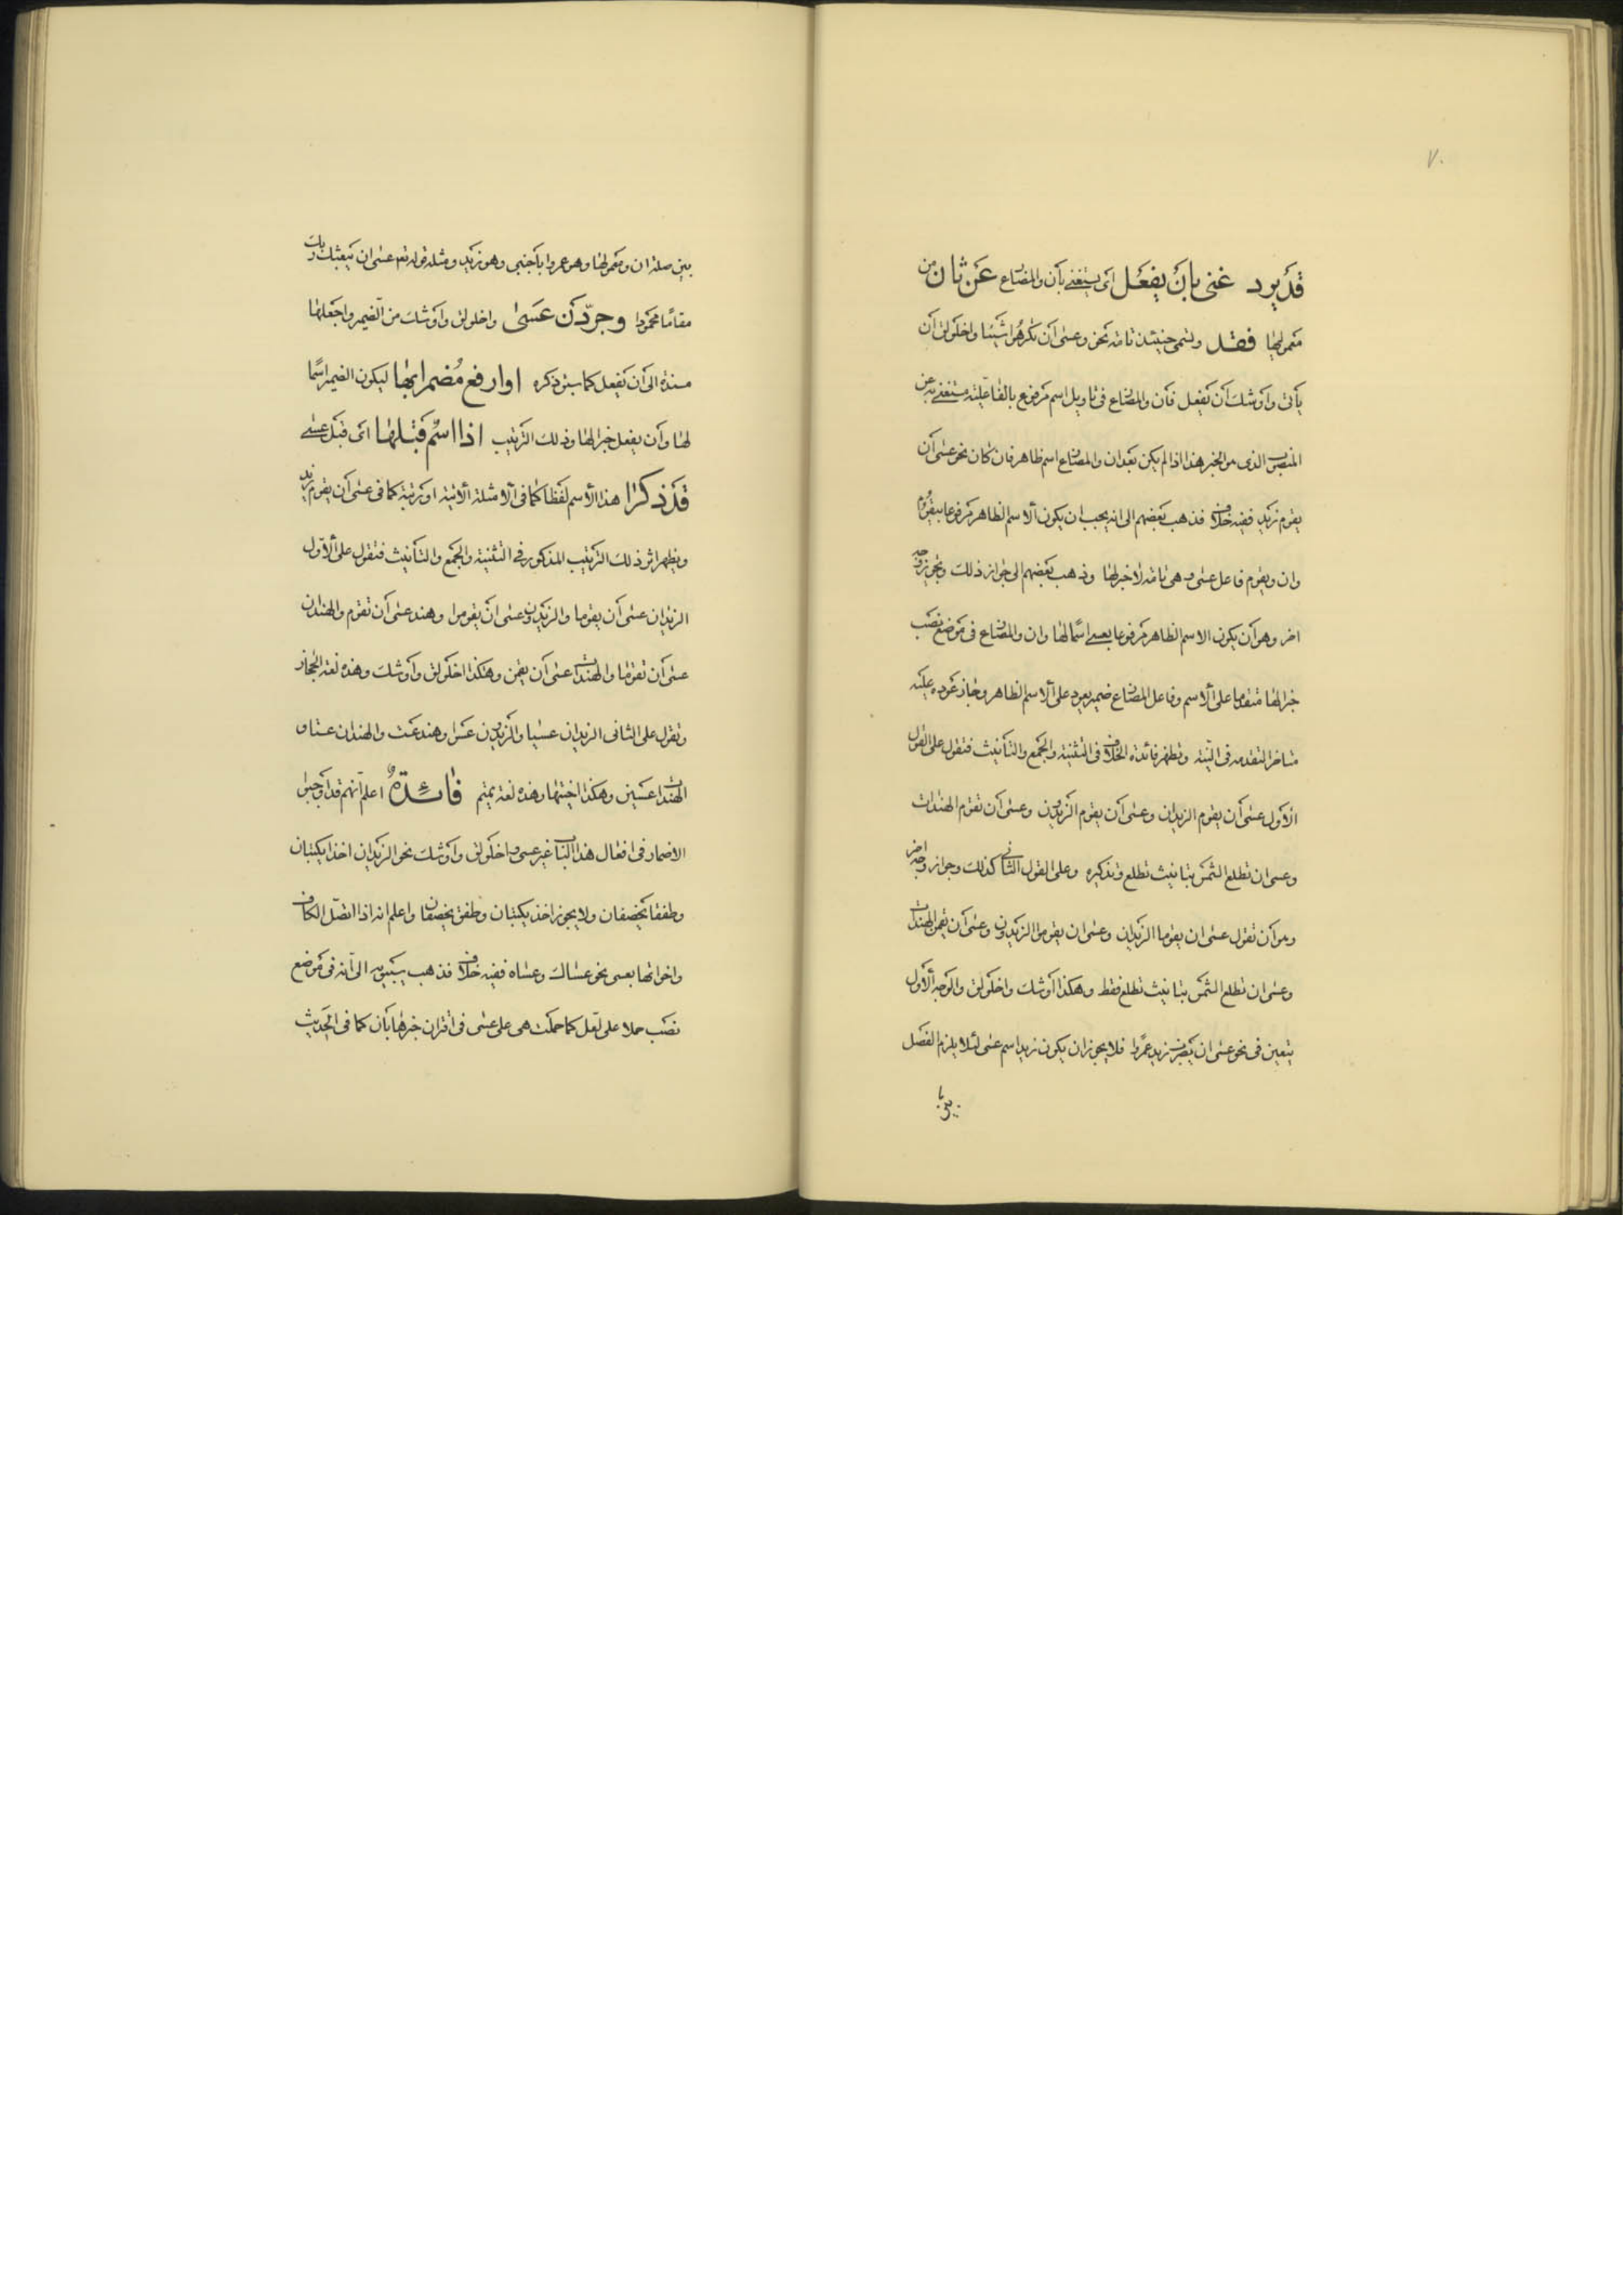 ٧٠
قد يرد غنى بان يفعل اى يستغنى بأن والمضارع عن ثان من
معمولها فقد وتسمى حينئذ تامة نحو وعسى أن تكرهوا شيئا واخلولق أن
يأتى وأوشك أن يفعل فأن والمضارع فى تاويل اسم مرفوع بالفاعلية مستغنى به عن
المنصوب الذى هو الخبر هذا اذا لم يكن بعد ان والمضارع اسم ظاهر فان كان نحو عسى أن
يقوم زيد ففيه خلاف فذهب بعضهم الى انه يجب ان يكون الاسم الظاهر مرفوعا بيقوم
وان ويقوم فاعل عسى وهى تامة لا خبر لها وذهب بعضهم الى جواز ذلك وتجويز وجه
اخر وهو أن يكون الاسم الظاهر مرفوعا بعسى اسما لها وان والمضارع فى موضع نصب
خبرا لها متقدما على الاسم وفاعل المضارع ضمير يعود على الاسم الظاهر وجاز عوده عليه
متاخرا لتقدمه فى النية وتظهر فائدة الخلاف فى التثنية والجمع والتأنيث فتقول على القول
الأول عسى أن يقوم الزيدان وعسى أن يقوم الزيدون وعسى أن تقوم الهندات
وعسى ان تطلع الشمس بتانيث تطلع وتذكيره وعلى القول الثانى كذلك وجواز وجه اخر
وهو أن تقول عسى ان يقوما الزيدان وعسى ان يقوموا الزيدون وعسى أن يقمن الهندات
وعسى ان تطلع الشمس بتانيث تطلع فقط وهكذا أوشك واخلولق والوجه الأول
يتعين فى نحو عسى ان يضرب زيد عمروا فلا يجوز ان يكون زيد اسم عسى لئلا يلزم الفصل
بين
بين صلة ان ومعمولها وهو عمروا بأجنبى وهو زيد ومثله قوله تعم عسى ان يبعثك ربك
مقاما محمودا وجرّدن عسى واخلولق وأوشك من الضمير واجعلها
مسندة الى أن يفعل كما سبق ذكره او ارفع مضمرا بها ليكون الضمير اسما
لها وأن يفعل خبرا لها وذلك الترتيب اذا اسم قبلها اى قبل عسى
قد ذكرا هذا الأسم لفظا كما فى الامثلة الأتية او رتبة كما فى عسى أن يقوم زيد
ويظهر اثر ذلك الترتيب المذكور فى التثنية والجمع والتأنيث فتقول على الأول
الزيدان عسى أن يقوما والزيدون عسى ان يقوموا وهند عسى أن تقوم والهندان
عسى أن تقوما والهندات عسى أن يقمن وهكذا اخلولق وأوشك وهذه لغة الحجاز
وتقول على الثانى الزيدان عسيا والزيدون عسوا وهند عست والهندان عستا و
الهندات عسين وهكذا اختيها وهذه لغة تميم فائدة اعلم أنهم قد أوجبوا
الاضمار فى افعال هذا الباب غير عسى واخلولق وأوشك نحو الزيدان اخذا يكتبان
وطفقا يخصفان ولا يجوز اخذ يكتبان وطفق يخصفان واعلم انه اذا اتصل الكاف
واخواتها بعسى نحو عساك وعساه ففيه خلاف فذهب سيبويه الى أنه فى موضع
نصب حملا على لعل كما حملت هى على عسى فى اقتران خبرها بأن كما فى الحديث